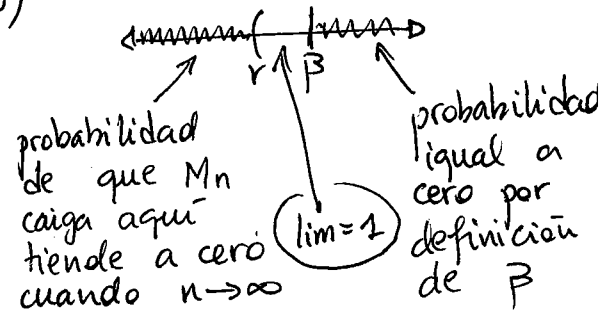 r β
probabilidad
de que Mn
caiga aquí
tiende a cero
cuando n→∞
lim=1
probabilidad
igual a
cero por
definición
de β